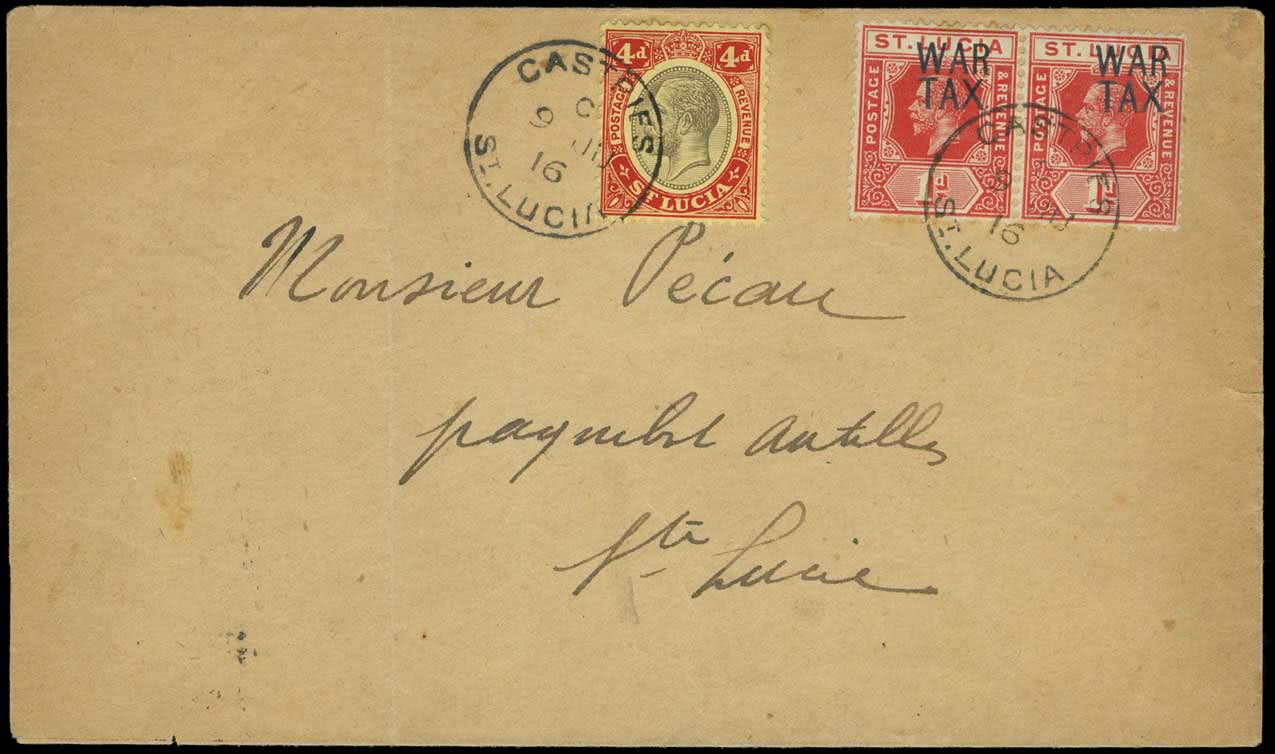 4d 4d
POSTAGE & REVENUE
ST LUCIA
ST. LUCIA
WAR
TAX
POSTAGE & REVENUE
1d
ST. LUCIA
WAR
TAX
POSTAGE & REVENUE
1d
CASTRIES
C
9 JU
16
ST. LUCIA
CASTRIES
JU
16
ST. LUCIA
Monsieur Pécau
paquebot Antilles
Ste Lucie